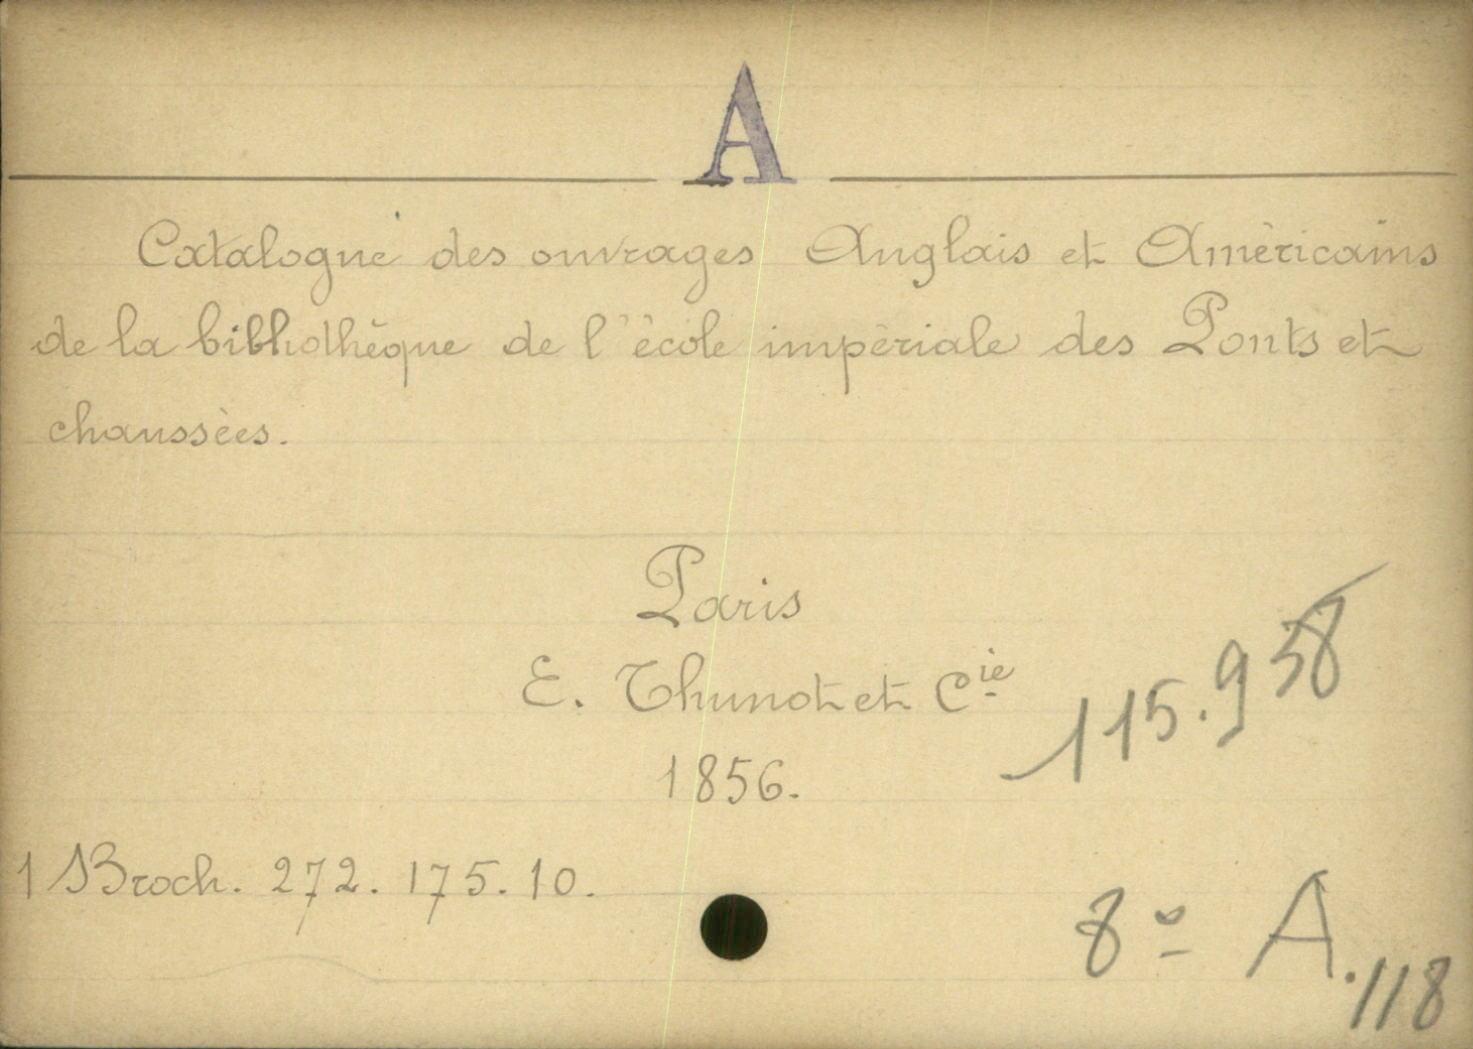 A
Catalogue des ouvrages Anglais et Américains
de la bibliothèque de l'école impériale des Ponts et
chaussées.
Paris
E. Thunot et Cie
1856.
115.958
1 Broch. 272. 175. 10.
8º A.118